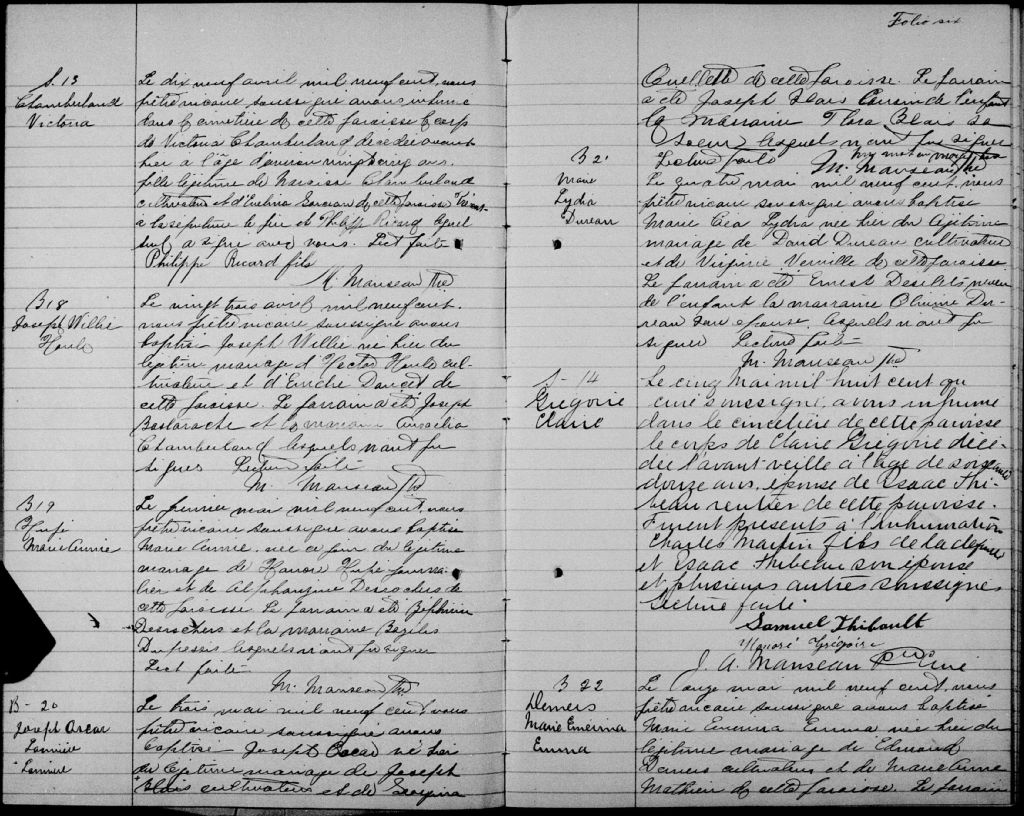 S. 13
Chamberland
Victoria
Le dix neuf avril mil neuf cent, nous
prêtre vicaire soussigné avons inhumé
dans le cimetière de cette paroisse le corps
de Victoria Chamberland décédée avant
hier à l'âge d'environ vingt cinq ans
fille légitime de Narcisse Chamberland
cultivateur et d'Evelina de cette paroisse
à la sépulture le père et Philippe Ricard
a signé avec nous. Lect faite
Philippe Ricard fils
M. Manseau Ptre
B 18
Joseph Willie
Houle
Le vingt trois avril mil neuf cent
nous prêtre vicaire soussigné avons
baptisé Joseph Willie né hier du
légitime mariage d'Hector Houle cul-
tivateur et d'Eméline Doucet de
cette paroisse. Le parrain a été Joseph
Bastarache et la marraine
Chamberland lesquels n'ont pu
signer Lecture faite
M. Manseau Ptre
B 19
Marie Annie
Le premier mai mil neuf cent, nous
prêtre vicaire soussigné avons baptisé
Marie Annie, née ce jour du légitime
mariage de Honoré journa-
lier et de Alphonsine Desrochers de
cette paroisse. Le parrain a été Zéphirin
Desrochers et la marraine
Dupressis lesquels n'ont pu signer
Lect faite
M. Manseau Ptre
B - 20
Joseph Oscar
Le trois mai mil neuf cent, nous
prêtre vicaire soussigné avons
baptisé Joseph Oscar né hier
du légitime mariage de Joseph
Blais cultivateur et de Georgina
Folio six
Ouellette de cette paroisse. Le parrain
a été Joseph Blais Cousin de l'enfant
la Marraine Flora Blais sa
soeur lesquels n'ont pu signer
Lecture faite
M. Manseau Ptre
B 21
Marie
Lydia
Dureau
Le quatre mai mil neuf cent, nous
prêtre vicaire soussigné avons baptisé
Marie Lydia née hier du légitime
mariage de David Dureau cultivateur
et de Virginie Verville de cette paroisse
Le parrain a été Ernest Deshétés
de l'enfant la marraine Olivine Du-
reau son épouse, lesquels n'ont pu
signer Lecture faite
M. Manseau Ptre
S - 14
Grégoire
Claire
Le cinq Mai mil huit cent
curé soussigné, avons inhumé
dans le cimetière de cette paroisse
le corps de Claire Grégoire décé-
dée l'avant veille à l'âge de soixante
douze ans, épouse de Isaac Thi-
beau rentier de cette paroisse.
Furent présents à l'inhumation
Charles Martin fils de la défunte
et Isaac Thibeau son épouse
et plusieurs autres soussignés
Lecture faite
Samuel Thibault
Honoré Grégoire
J. A. Manseau Ptre Curé
B 22
Demers
Marie Emerina
Emma
Le onze mai mil neuf cent, nous
prêtre vicaire soussigné avons baptisé
Marie Emerina Emma, née hier du
légitime mariage de Edmond
Demers cultivateur et de Marie Anne
Mathieu de cette paroisse. Le parrain